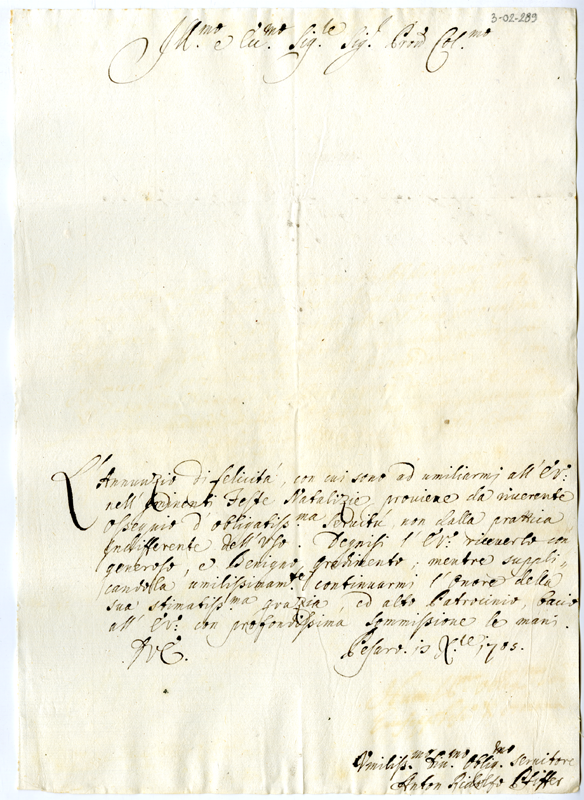 3-02-289
Ill.mo e Ecc.mo Sig.re Sig.r Pron Col.mo
L'Annunzio di felicità, con cui sono ad umiliarmi all'E.V.
nell'imminenti Feste Natalizie proviene da riverente
Ossequio d'obligatiss.ma servitù, non dalla prattica
Indifferente dell'Uso. Degnisi l'E.V. riceverlo con
generoso, e Benigno gradimento; mentre suppli=
candola umilissimam.te continuarmi l'Onore della
sua stimatiss.ma grazia, ed alto Patrocinio, bacio
all'E.V. con profondissima sommissione le mani.
Di V.E. Pesaro. 12 X.bre 1705.
Umiliss.mo Div.mo Oblig.mo servitore
Anton Ridolfo